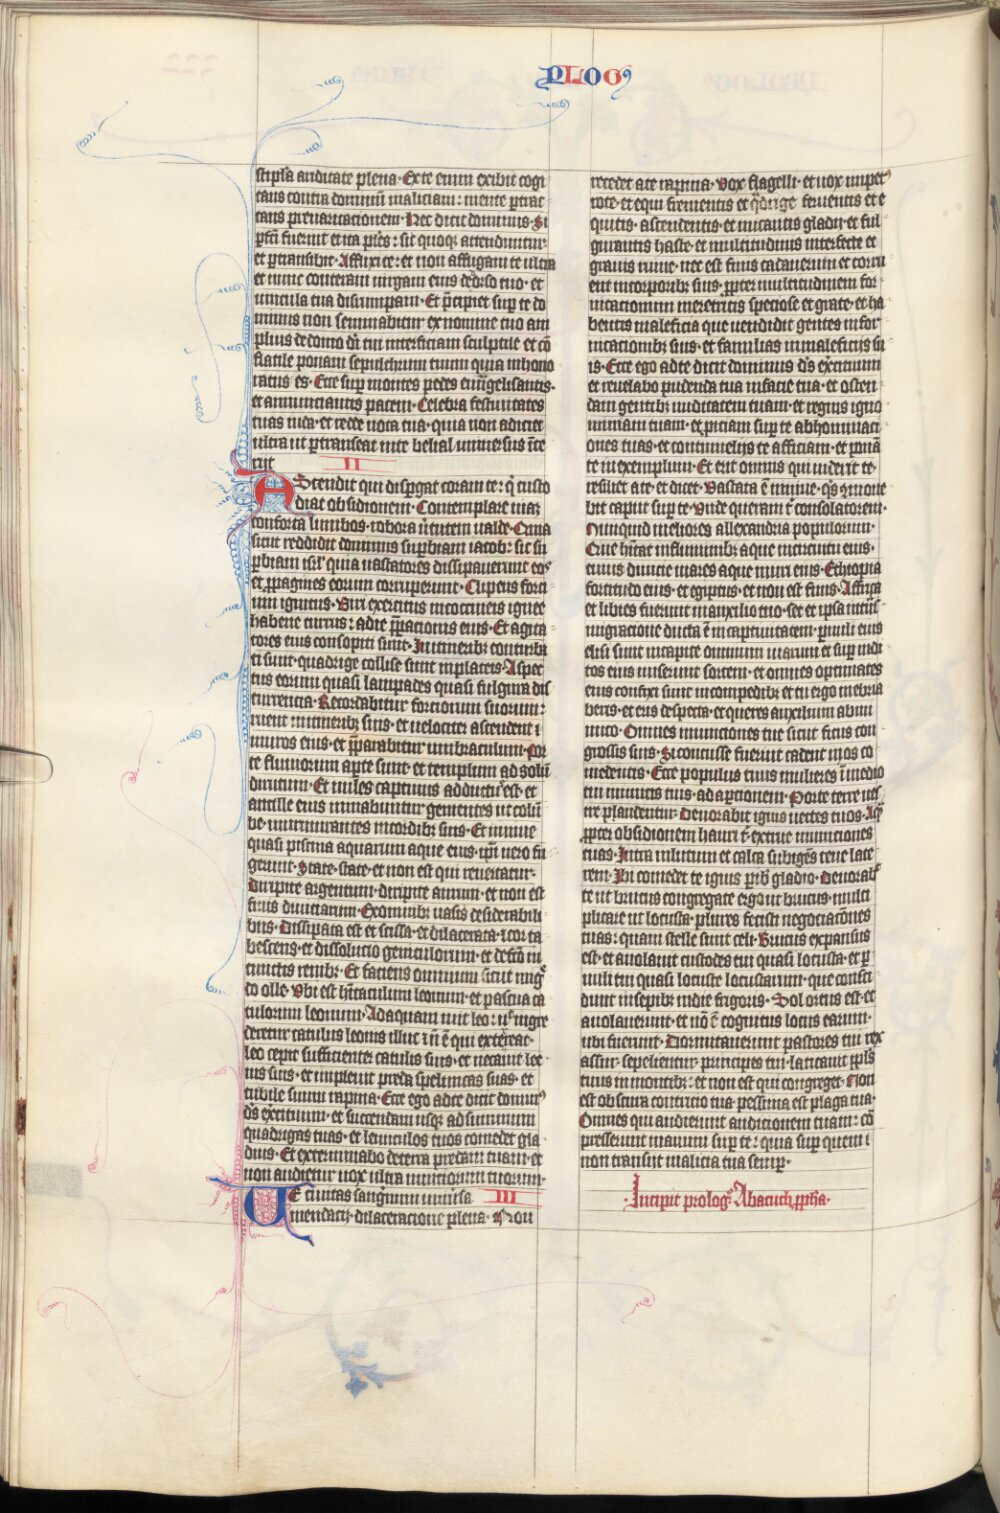 PLOGꝰ
stipla ariditate plena· Ex te enim exibit cogi
tans contra dominū maliciam: mente ꝑtrac
tans preuaricacionem· Hec dicit dominus· Si
ꝑfcī fuerint et ita ꝑles: sic quoqꝫ attenduntur·
et ꝑtransibit· Afflixi te: et non affligam te ultra
et nunc conteram uirgam eius de dorso tuo· et
uincula tua disrumpam· Et p̄cipiet suꝑ te do
minus non seminabitur ex nomine tuo am
plius de domo dī tui interficiam sculptile et cō
flatile ponam sepulchrum tuum quia inhono
ratus es· Ecce suꝑ montes pedes euāgelisantis·
et annunciantis pacem· Celebra festiuitates
tuas iuda· et redde uota tua· quia non adiciet
ultra ut ꝑtranseat in te belial uniuersus īte
riit II
AScendit qui disꝑgat coram te: q̄ custo
diat obsidionem· Contemplare uiaꝫ
conforta lumbos· robora u̇tutem ualde· Quia
sicut reddidit dominus suꝑbiam iacob: sic su
ꝑbiam isrl̄ quia uastatores dissipauerunt eos
et ꝓpagines eorum corruperunt· Clipeus forci
um igneus· Uiri exercitus in coccineis ignee
habene currus: a die p̄paracionis eius· Et agita
tores eius consopiti sunt· In itineribꝫ conturba
ti sunt· quadrige collise sunt in plateis· Aspec
tus eorum quasi lampades quasi fulgura dis
currencia· Recordabitur forciorum suorum:
ruent in itineribꝫ suis· et uelociter ascendent ī
muros eius· et p̄parabitur umbraculum· Por
te fluuiorum aꝑte sunt· et templum ad solū
dirutum· Et miles captiuus adductus est· et
ancille eius minabuntur gementes ut colū
be· murmurantes in cordibꝫ suis· Et niniue
quasi piscina aquarum aque eius· ipi uero fu
gerunt· State· state· et non est qui reuertatur·
Diripite argentum· diripite aurum· et non est
finis diuiciarum· Ex omnibꝫ uasis desiderabili
bus· Dissipata est et scissa· et dilacerata· ⁊ cor ta
bescens· et dissolucio geniculorum· et defcō in
cunctis renibꝫ· Et facies omnium sicut nigᵉ
do olle· Vbi est hītaculum leonum· et pascua ca
tulorum leonum· Ad quam iuit leo: ut ingre
deretur catulus leonis illuc ⁊ nō ē qui exterreat·
leo cepit sufficienter catulis suis· et necauit lee
nis suis· et impleuit preda speluncas suas· et
cubile suum rapina· Ecce ego ad te dicit dominꝰ
dꝰs exercituum· et succendam usqꝫ ad summum
quadrigas tuas· et leunculos tuos comedet gla
dius· Et exterminabo de terra predam tuam· et
non audietur uox ultra nunciorum tuorum·
UE ciuitas sanguinum uniuersa III
mendacii· dilaceracione plena· Non
recedet a te rapina· Vox flagelli· et uox impetꝰ
rote· et equi frementis et q̄drige feruentis et e
quitis· ascendentis· et micantis gladii· et ful
gurantis haste· et multitudinis interfecte et
grauis ruine· nec est finis cadauerum et corru
ent in corporibꝫ suis· ꝓpter multitudinem for
nicacionum meretricis speciose et grate· et ha
bentis maleficia que uendidit gentes in for
nicacionibꝫ suis· et familias in maleficiis su
is· Ecce ego ad te dicit dominus dꝰs exercituum
et reuelabo pudenda tua in facie tua· et osten
dam gentibꝫ nuditatem tuam· et regnis igno
miniam tuam· et ꝓiciam suꝑ te abhominaci
ones tuas· et contumeliis te afficiam· et ponā
te in exemplum· Et erit omnis qui uiderit te·
resiliet a te· et dicet· Uastata ē niniue· q̄s cōmoue
bit caput suꝑ te· Vnde queram t̄ consolatorem·
Nunquid meliores allexandria populorum·
Que hītat in fluminibꝫ aque in circuitu eius·
cuius diuicie mares aque muri eius· Ethiopia
fortitudo eius· et egiptus· et non est finis· Affrica
et libies fuerunt in auxilio tuo· set et ipsa in trās
migracione ducta ē in captiuitatem· ꝑuuli eius
elisi sunt in capite omnium uiarum et suꝑ incli
tos eius miserunt sortem· et omnes optimates
eius confixi sunt in compedibꝫ· et tu ergo inebria
beris· et eris despecta· et queres auxilium ab ini
mico· Omnes municiones tue sicut ficus cum
grossis suis· Si concusse fuerint cadent in os co
medentis· Ecce populus tuus mulieres ī medio
tui inimicis tuis· ad aꝑcionem· Porte terre ues
tre pandentur· deuorabit ignis uectes tuos· Aq̄
ꝓpter obsidionem hauri t̄· extrue municiones
tuas· Intra in lutum et calca subigens tene late
rem· Ibi comedet te ignis ꝑibis gladio· deuorab
te ut brucus congregate ergo ut brucus· multi
plicare ut locusta· plures fecisti negociacōnes
tuas: quam stelle sunt celi· Brucus expansus
est· et auolauit custodes tui quasi locusta· et ꝑ
uuli tui quasi locuste locustarum· que consi
dunt in sepibꝫ in die frigoris· Sol ortus est· et
auolauerunt· et nō ē cognitus locus earum·
ubi fuerint· Dormitauerunt pastores tui rex
assur· sepelientur principes tui· latitauit ppl̄s
tuus in montibꝫ: et non est qui congreget· Non
est obscura contricio tua· pessima est plaga tua·
Omnes qui audierunt audicionem tuam: cō
presserunt manum suꝑ te: quia suꝑ quem ī
non transiit malicia tua semꝑ·
Incipit prologꝰ Abacuch ꝓph̄a·